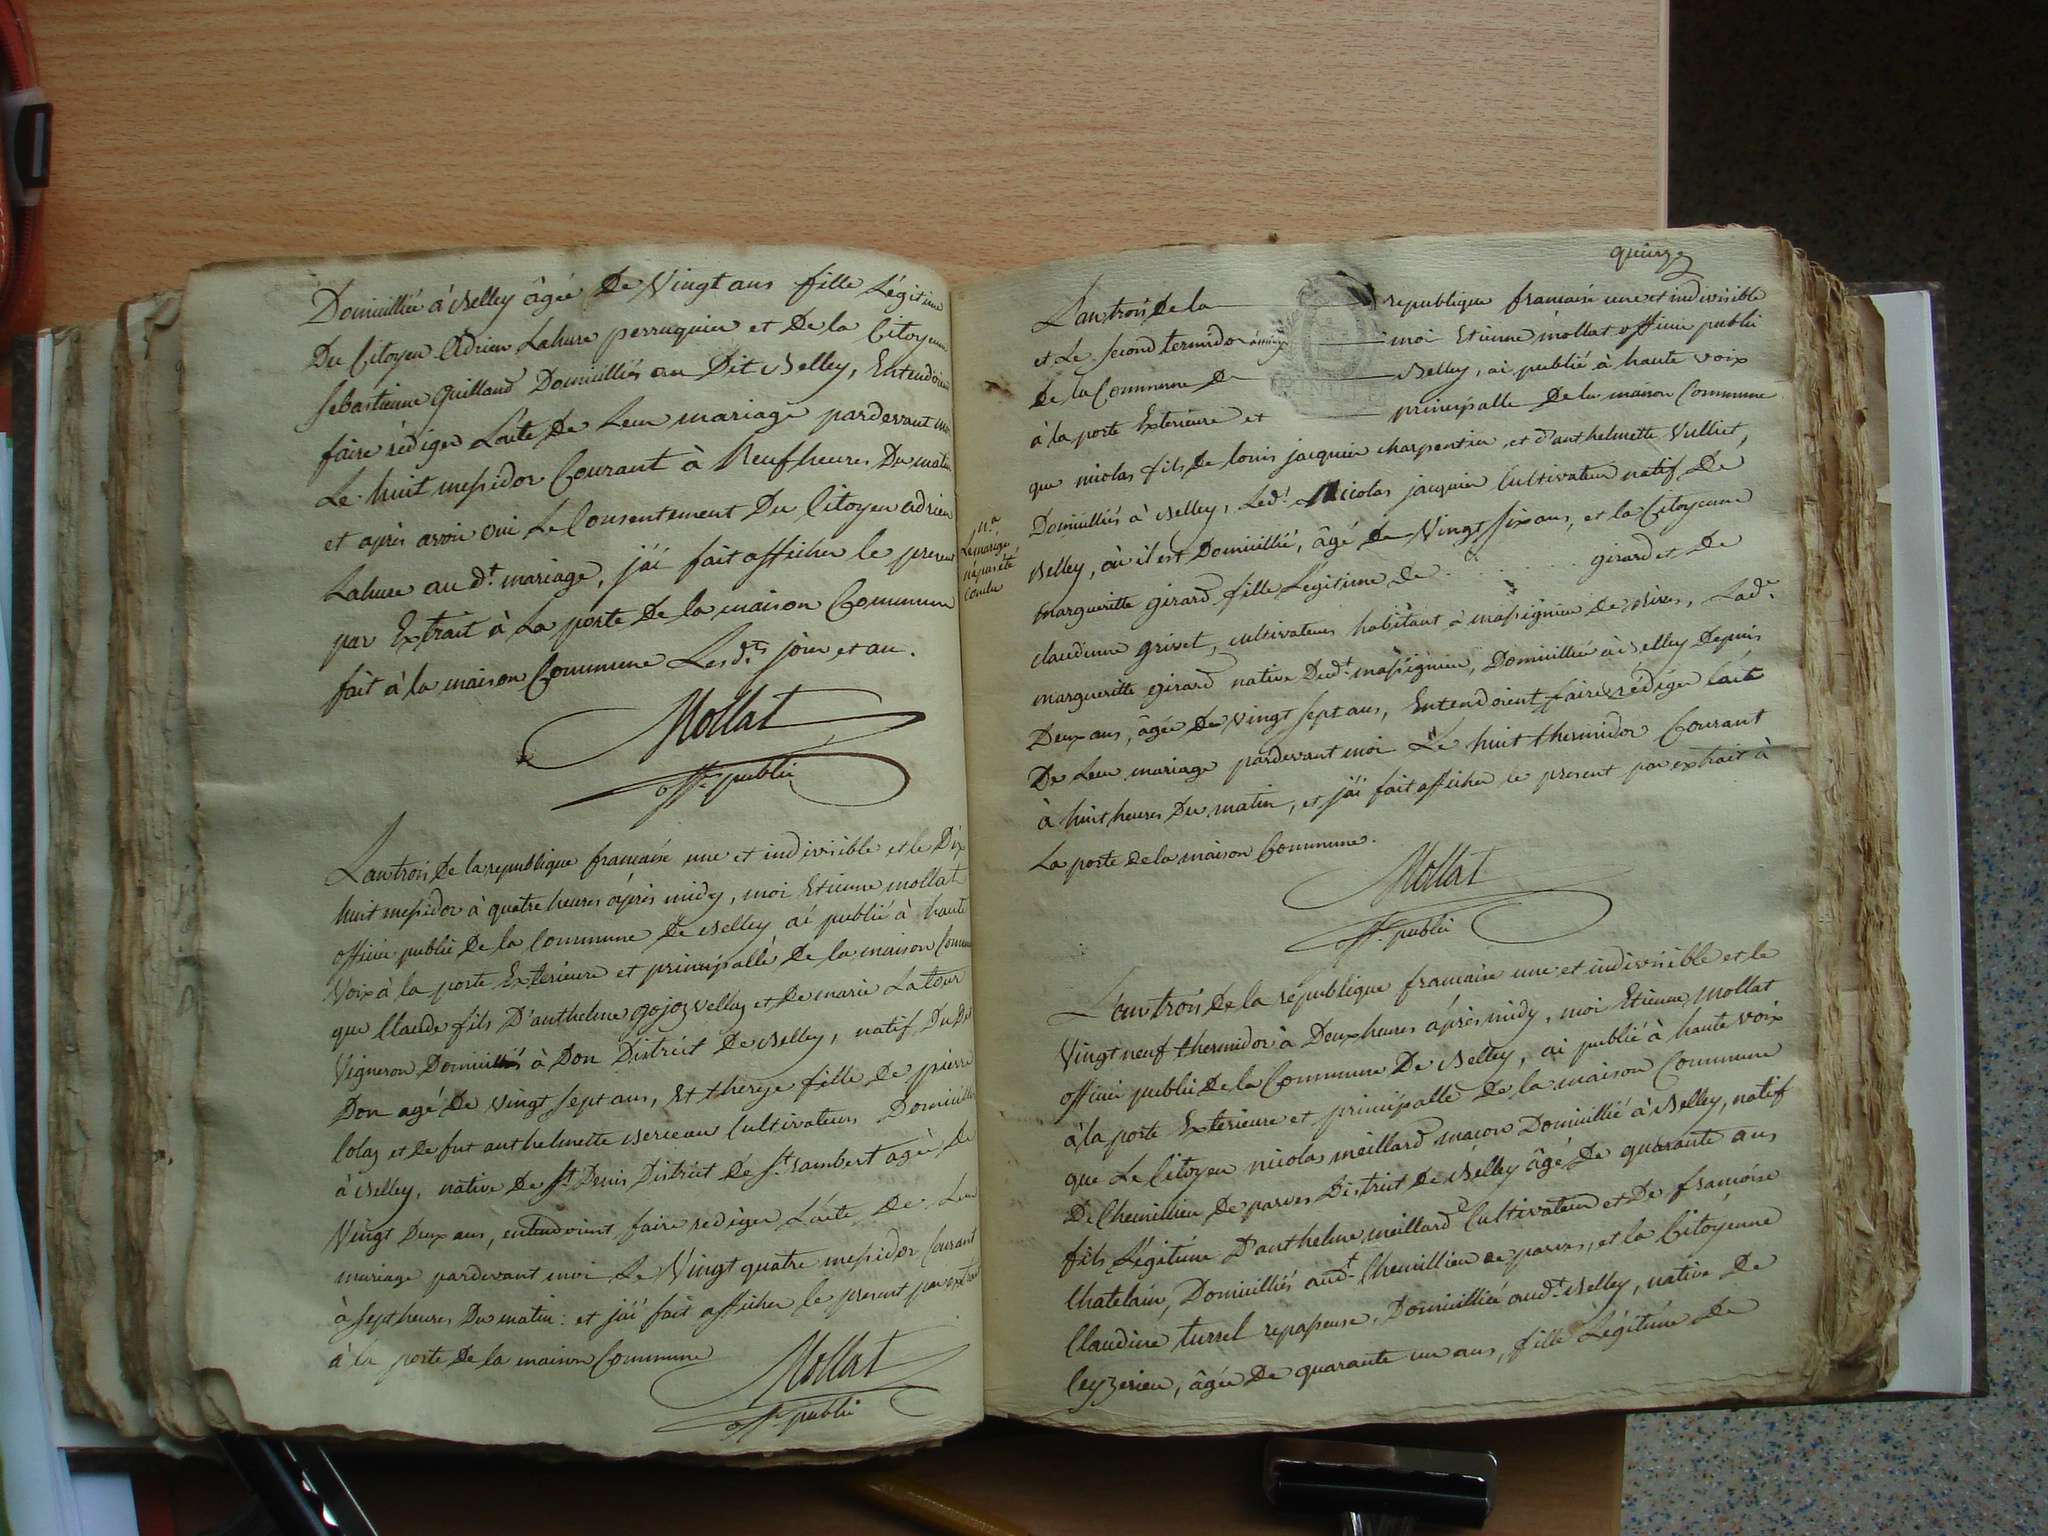 Domicilliée à Belley âgée De Vingt ans fille Légitime
Du Citoyen Adrien Lahure perruquier et De la Citoyenne
Sebastienne Guilland Domicilliés au Dit Belley, Entendoient
faire rédiger L'acte De Leur mariage pardevant moi
Le huit messidor Courant à Neuf heures Du matin
et après avoir oui Le Consentement Du Citoyen adrien
Lahure au dt. mariage, j'ai fait afficher le present
par Extrait à La porte De la maison Commune
fait à la maison Commune Lesdts. jour et an.
Mollat
off. public
L'an trois De la republique francaise une et indivisible et le Dix
huit messidor à quatre heures après midy, moi Etienne mollat
officier public De la Commune De Belley ai publié à haute
Voix à la porte Exterieure et principalle De la maison Commune
que Claude fils D'anthelme gojoz vellaz et De marie Latour
Vigneron Domicilliés à Don District De Belley, natif Du Dit
Don agé De Vingt sept ans, Et therese fille De pierre
Colaz et De fut anthelmette Berceau Cultivateurs Domicilliés
à Belley, native De St. Denis District De St. Rambert agée De
Vingt Deux ans, entendoient faire rediger L'acte De Leur
mariage pardevant moi Le Vingt quatre messidor Courant
à sept heures Du matin: et j'ai fait afficher le present par extrait
à la porte De la maison Commune
Mollat
off. public
na
Le mariage
n'a pas été
Conclu
quinze
L'an trois De la republique francaise une et indivisible
et Le second termidor année moi Etienne mollat officier public
De la Commune De Belley, ai publié à haute voix
à la porte Exterieure et principalle De la maison Commune
que nicolas fils De louis jacquier charpentier et d'anthelmette Vulliet,
Domicilliés à Belley, Ledt. Nicolas jacquier Cultivateur natif De
Belley, où il est Domicillié, âgé De Vingt Six ans, et la Citoyenne
margueritte girard fille Légitime De . . . . . . girard et De
claudine grivet, cultivateurs habitant à massignieu De Rives, Lade.
margueritte girard native Dudt. massignieu, Domicilliée à Belley Depuis
Deux ans, âgée De Vingt sept ans, Entendoient faire rédiger l'acte
De Leur mariage pardevant moi Le huit thermidor Courant
à huit heures Du matin, et j'ai fait afficher le present par extrait à
La porte De la maison Commune.
Mollat
off. public
L'an trois De la république francaise une et indivisible et le
Vingt neuf thermidor à Deux heures après midy, moi Etienne Mollat
officier public De la Commune De Belley, ai publié à haute voix
à la porte Exterieure et principalle De la maison Commune
que Le Citoyen nicolas meillard macon Domicillié à Belley, natif
De Chemillieu De parves District De Belley âgé De quarante ans
fils Légitime D'anthelme meillard Cultivateur et De francoise
Chatelain, Domicilliés audt. Chemillieu De parves, et la Citoyenne
Claudine turrel repasseuse, Domicilliée audt. Belley, native De
Ceyzerieu, âgée De quarante un ans, fille Légitime De